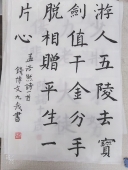 游人五陵去寶
劍值千金分手
脫相贈平生一
片心
孟浩然詩
文九歲書